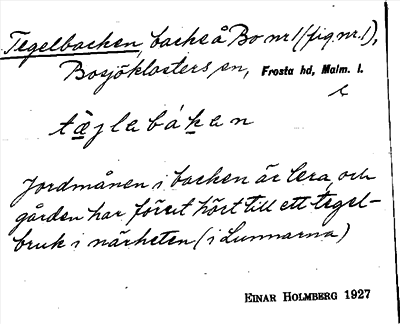 Tegelbacken, backe å Bo nr 1 (fig. nr. 1),
Bosjöklosters sn, Frosta hd, Malm. l.
tæ̀jlabákan
Jordmånen i backen är lera, och
gården har förut hört till ett tegel-
bruk i närheten (i Lunnarna)
EINAR HOLMBERG 1927